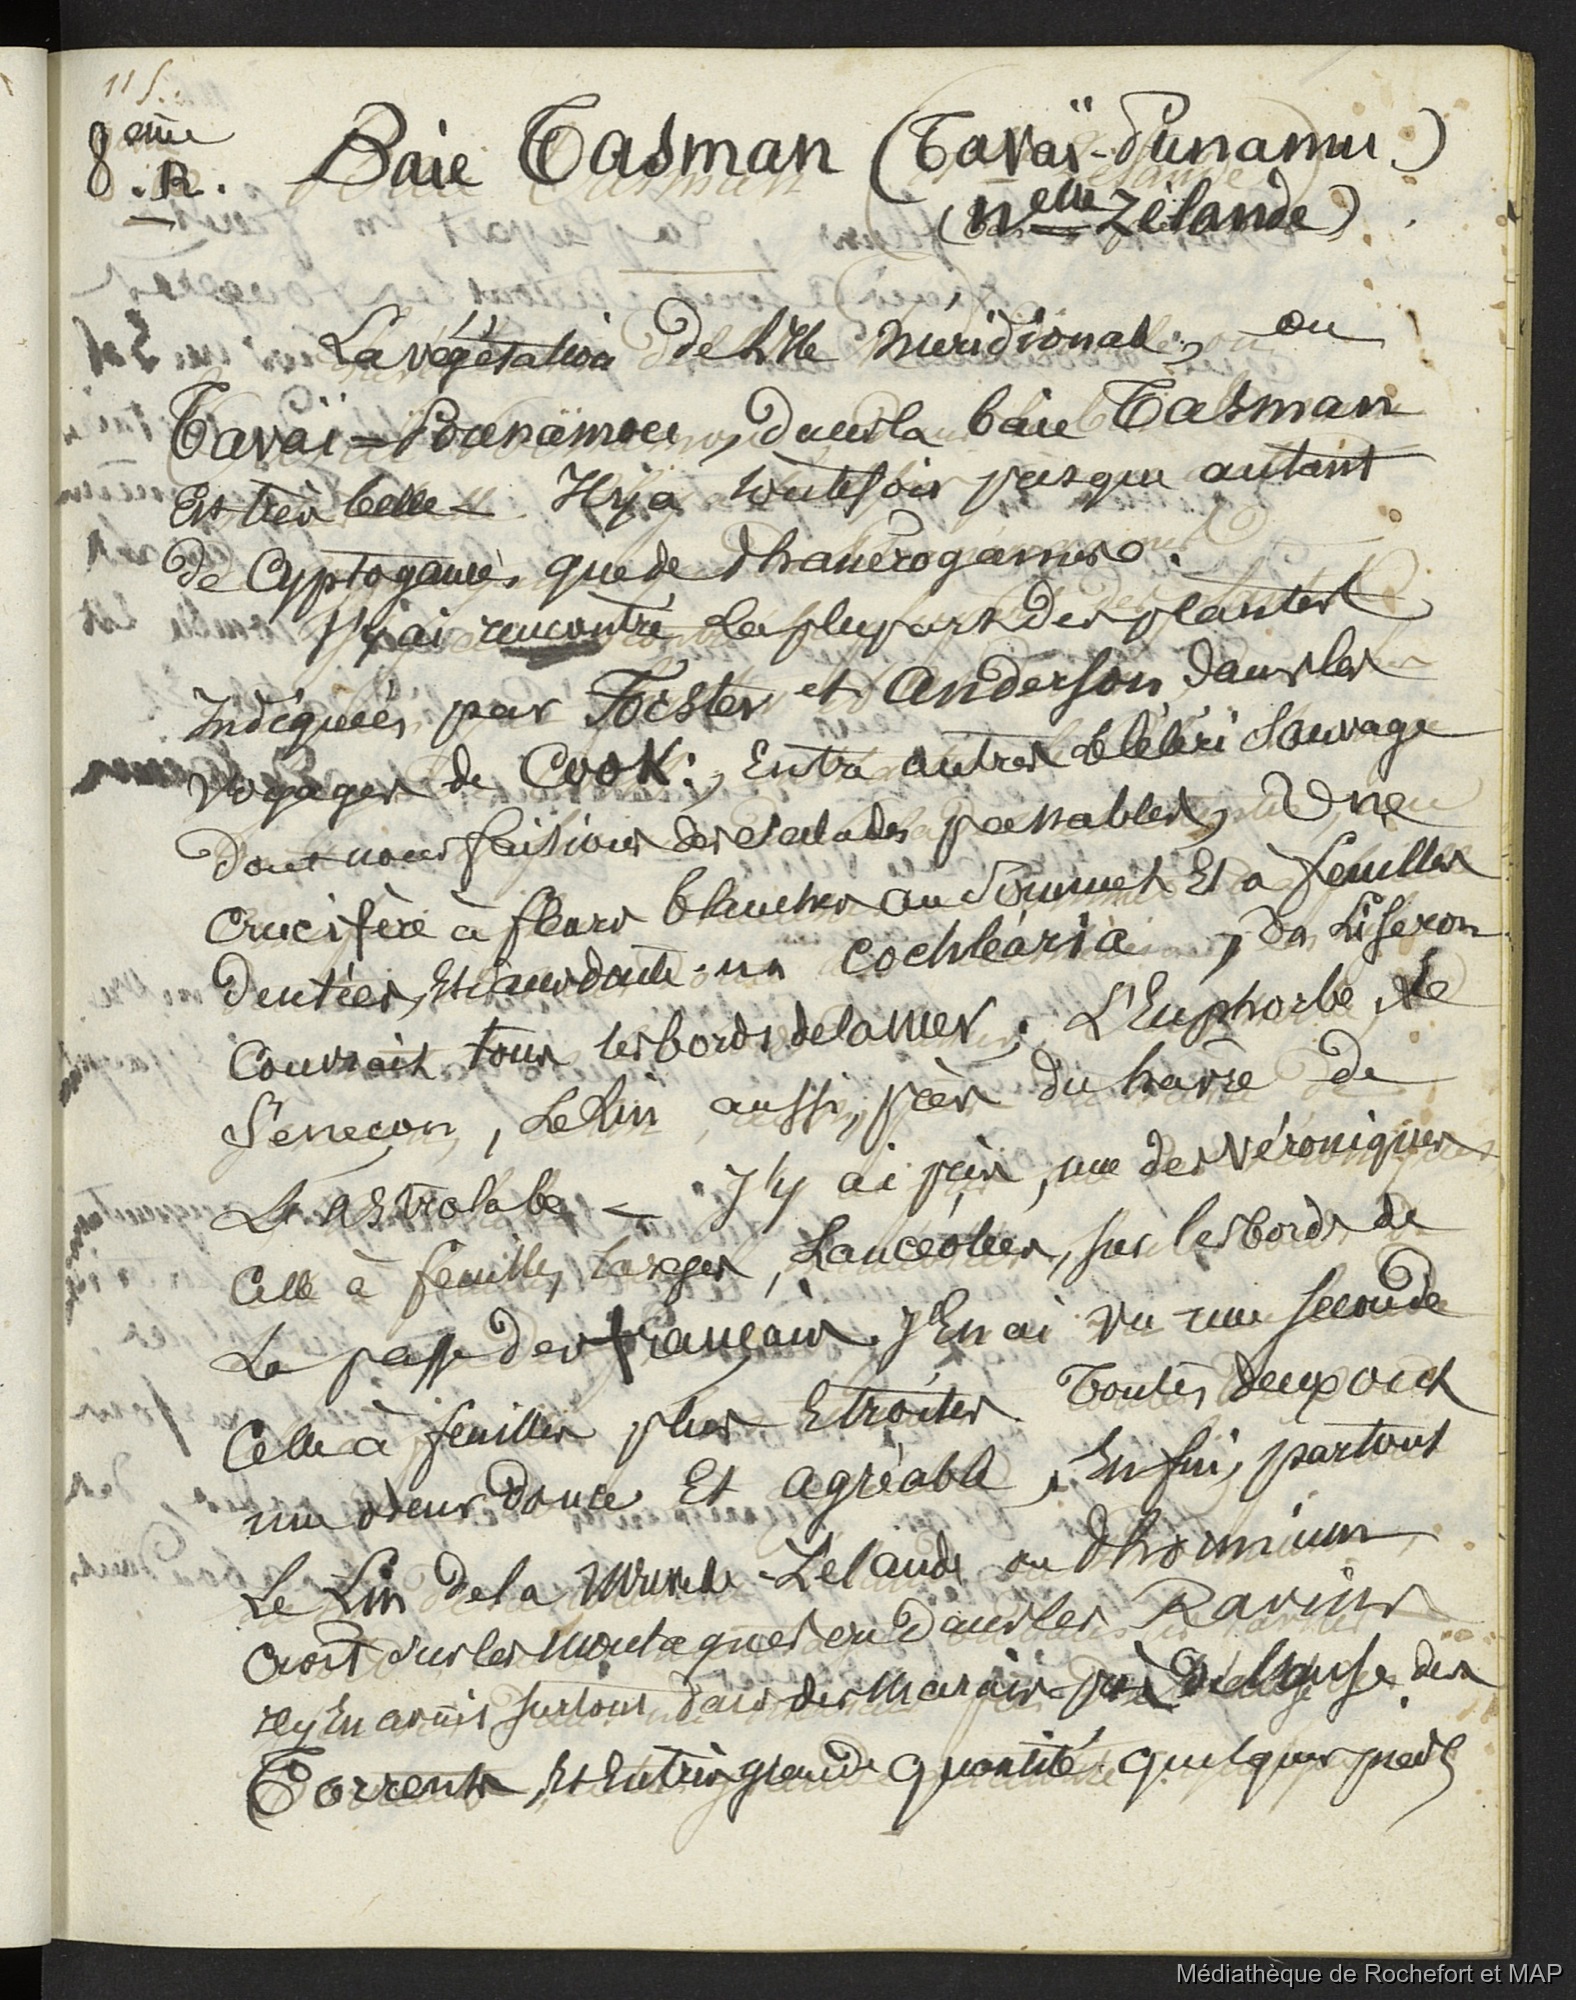 115.
8eme R. Baie Tasman (Tavaï-Punamu.)
(Nelle Zélande)
La végétation de L'Ile Méridionale, ou
Tavaï=Poenämou, dans la baie Tasman
Est très belle — Il y a toutefois presque autant
de Cyptogames, que de Phanérogames.
J'y ai rencontré La plupart des plantes
Indiquées par Forster et Anderson, dans les
voyages de Cook: Entre autres le Céléri Sauvage
dont nous faisions des Salades passables, Une
Crucifère à fleurs blanches au Sommet Et à feuilles
dentées, Et sans doute un Cochléaria, Du Liseron
Couvrait tous les bords de la Mer; L'Euphorbe, Le
Seneçon, Le Lin aussi, près du havre de
L'Astrolabe — J'y ai pris, une des Véroniques
Celle à feuilles larges, Lancéolées, sur les bords de
La passe des français. J'En ai vu une Seconde
Celle à feuilles plus Etroites. Toutes deux ont
une odeur douce Et agréable, Enfin, partout
Le Lin de la Nouvelle-Zélande ou Phormium
croit sur les Montagnes ou Dans les Ravins
il y En avait surtout dans des Marais près de des
Torrents, Et En très grande quantité. quelques pieds
Médiathèque de Rochefort et MAP